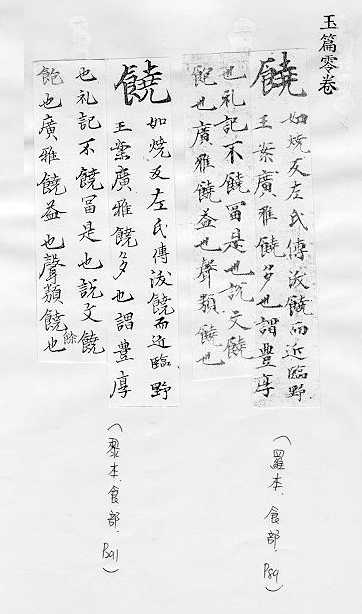 玉篇零卷
饒
如燒反左氏傳沃饒而近臨野
王案廣雅饒多也謂豊厚
也礼記不饒冨是也說文饒
飽也廣雅饒益也聲類饒也
(羅本.食部.P89)
饒
如燒反左氏傳沃饒而近臨野
王案廣雅饒多也謂豊厚
也礼記不饒冨是也說文饒
飽也廣雅饒益也聲類饒餘也
(黎本.食部.B91)